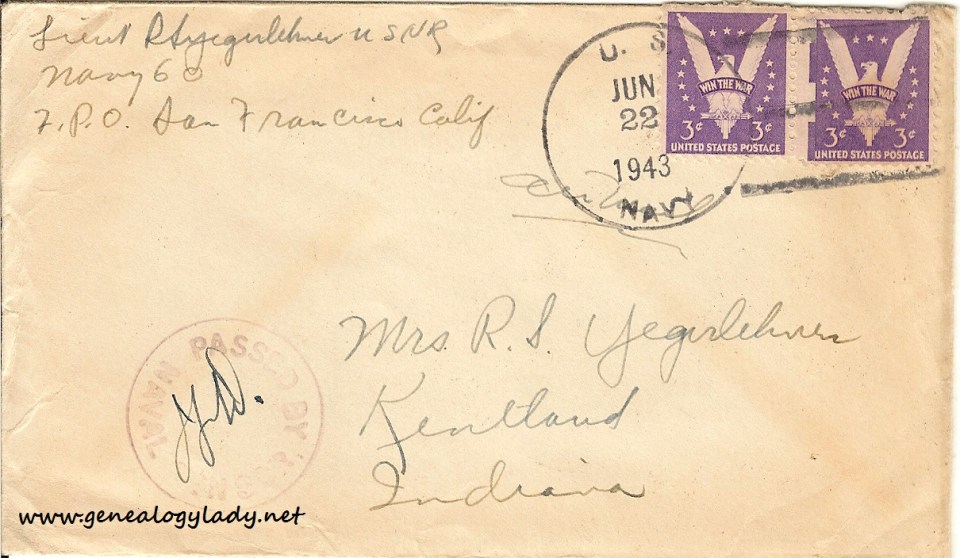 Lieut R S Yegerlehner USNR
Navy 60
F.P.O. San Francisco Calif
U. S.
JUN
22
1943
NAVY
WIN THE WAR
3¢ 3¢
UNITED STATES POSTAGE
WIN THE WAR
3¢ 3¢
UNITED STATES POSTAGE
Mrs. R. S. Yegerlehner
Kentland
Indiana
PASSED BY
NAVAL
www.genealogylady.net